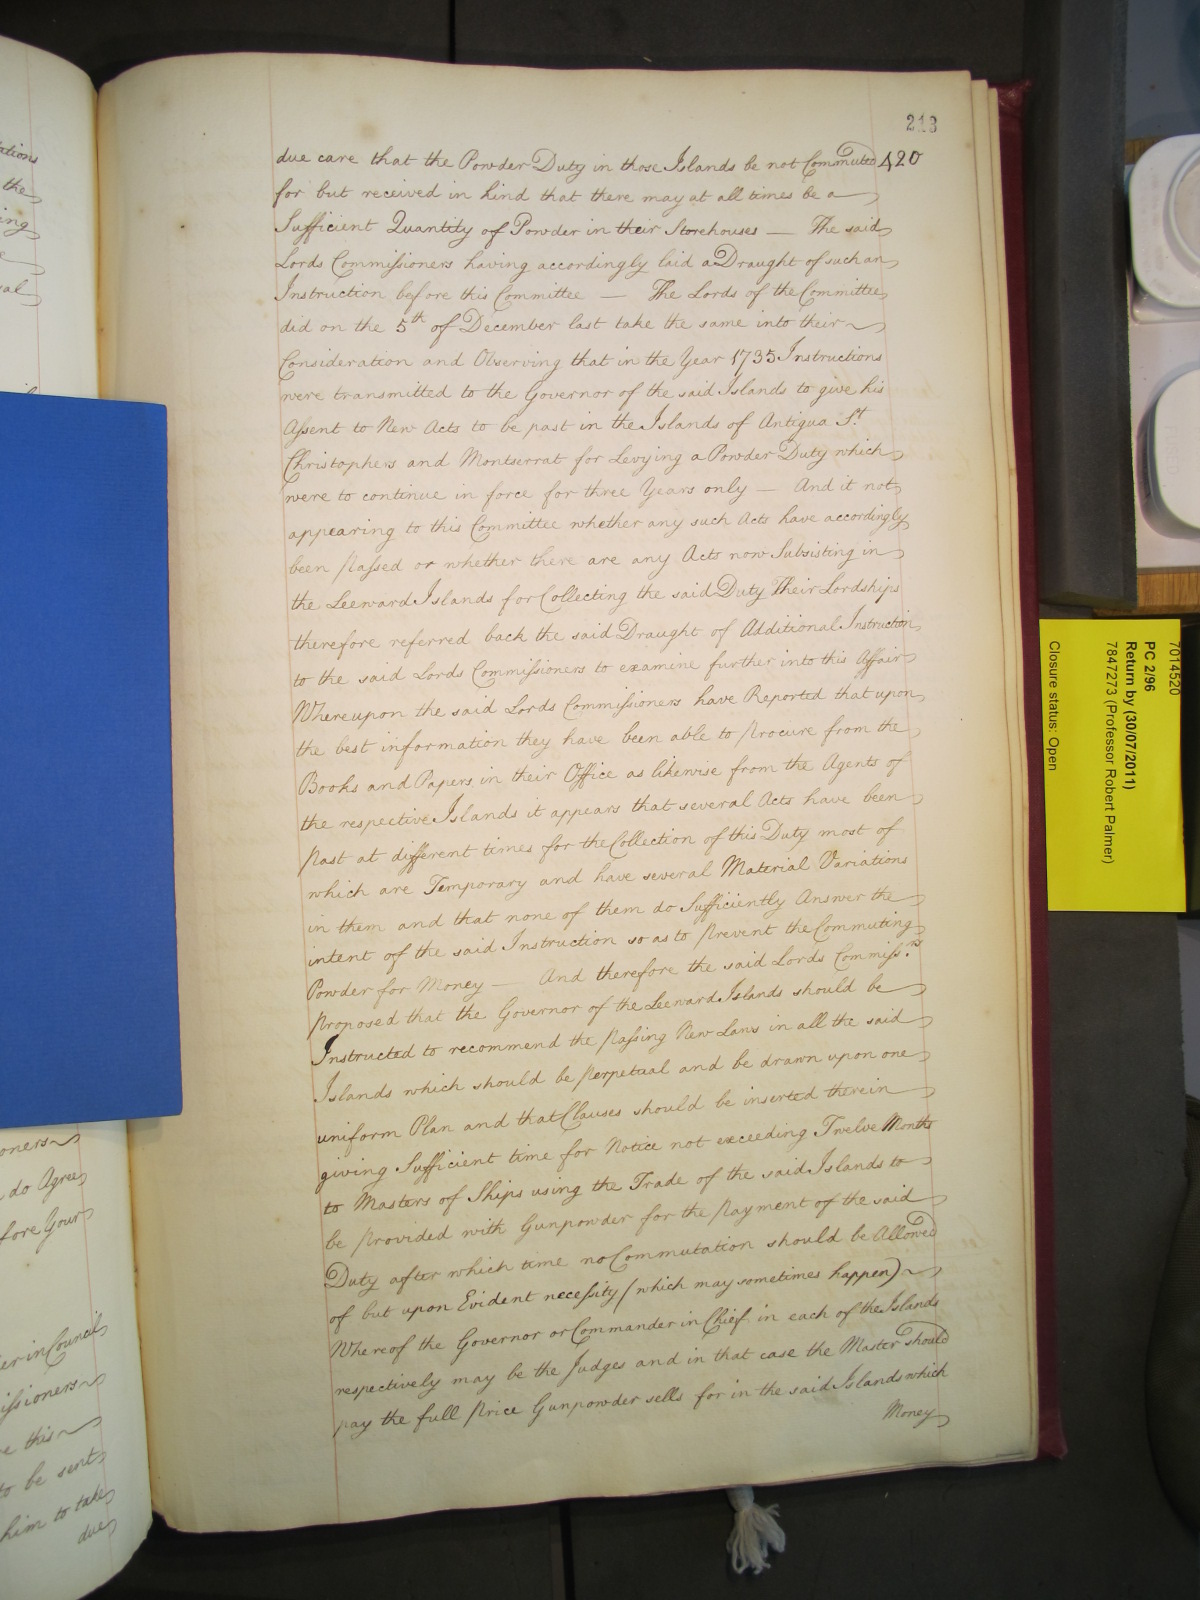 ations
the
ing
e
yal
oners
do Agree
fore Your
er in Council
issioners
e this
to be sent
him to take
due
213
420
due care that the Powder Duty in those Islands be not Commuted
for but received in kind that there may at all times be a
Sufficient Quantity of Powder in their Storehouses — The said
Lords Commissioners having accordingly laid a Draught of such an
Instruction before this Committee — The Lords of the Committee
did on the 5th of December last take the same into their
Consideration and Observing that in the Year 1735 Instructions
were transmitted to the Governor of the said Islands to give his
Assent to New Acts to be past in the Islands of Antigua St.
Christophers and Montserrat for Levying a Powder Duty which
were to continue in force for three Years only — And it not
appearing to this Committee whether any such Acts have accordingly
been passed or whether there are any Acts now Subsisting in
the Leeward Islands for Collecting the said Duty Their Lordships
therefore referred back the said Draught of Additional Instruction
to the said Lords Commissioners to examine further into this Affair
Whereupon the said Lords Commissioners have Reported that upon
the best information they have been able to procure from the
Books and Papers in their Office as likewise from the Agents of
the respective Islands it appears that several Acts have been
past at different times for the Collection of this Duty most of
which are Temporary and have several Material Variations
in them and that none of them do Sufficiently Answer the
intent of the said Instruction so as to prevent the Commuting
Powder for Money — And therefore the said Lords Commiss.rs
proposed that the Governor of the Leeward Islands should be
Instructed to recommend the passing New Laws in all the said
Islands which should be perpetual and be drawn upon one
uniform Plan and that Clauses should be inserted therein
giving Sufficient time for Notice not exceeding Twelve Months
to Masters of Ships using the Trade of the said Islands to
be provided with Gunpowder for the payment of the said
Duty after which time no Commutation should be Allowed
of but upon Evident necessity (which may sometimes happen)
Whereof the Governor or Commander in Chief in each of the Islands
respectively may be the Judges and in that case the Master should
pay the full price Gunpowder sells for in the said Islands which
Money
7014520
PC 2/96
Return by (30/07/2011)
7847273 (Professor Robert Palmer)
Closure status: Open